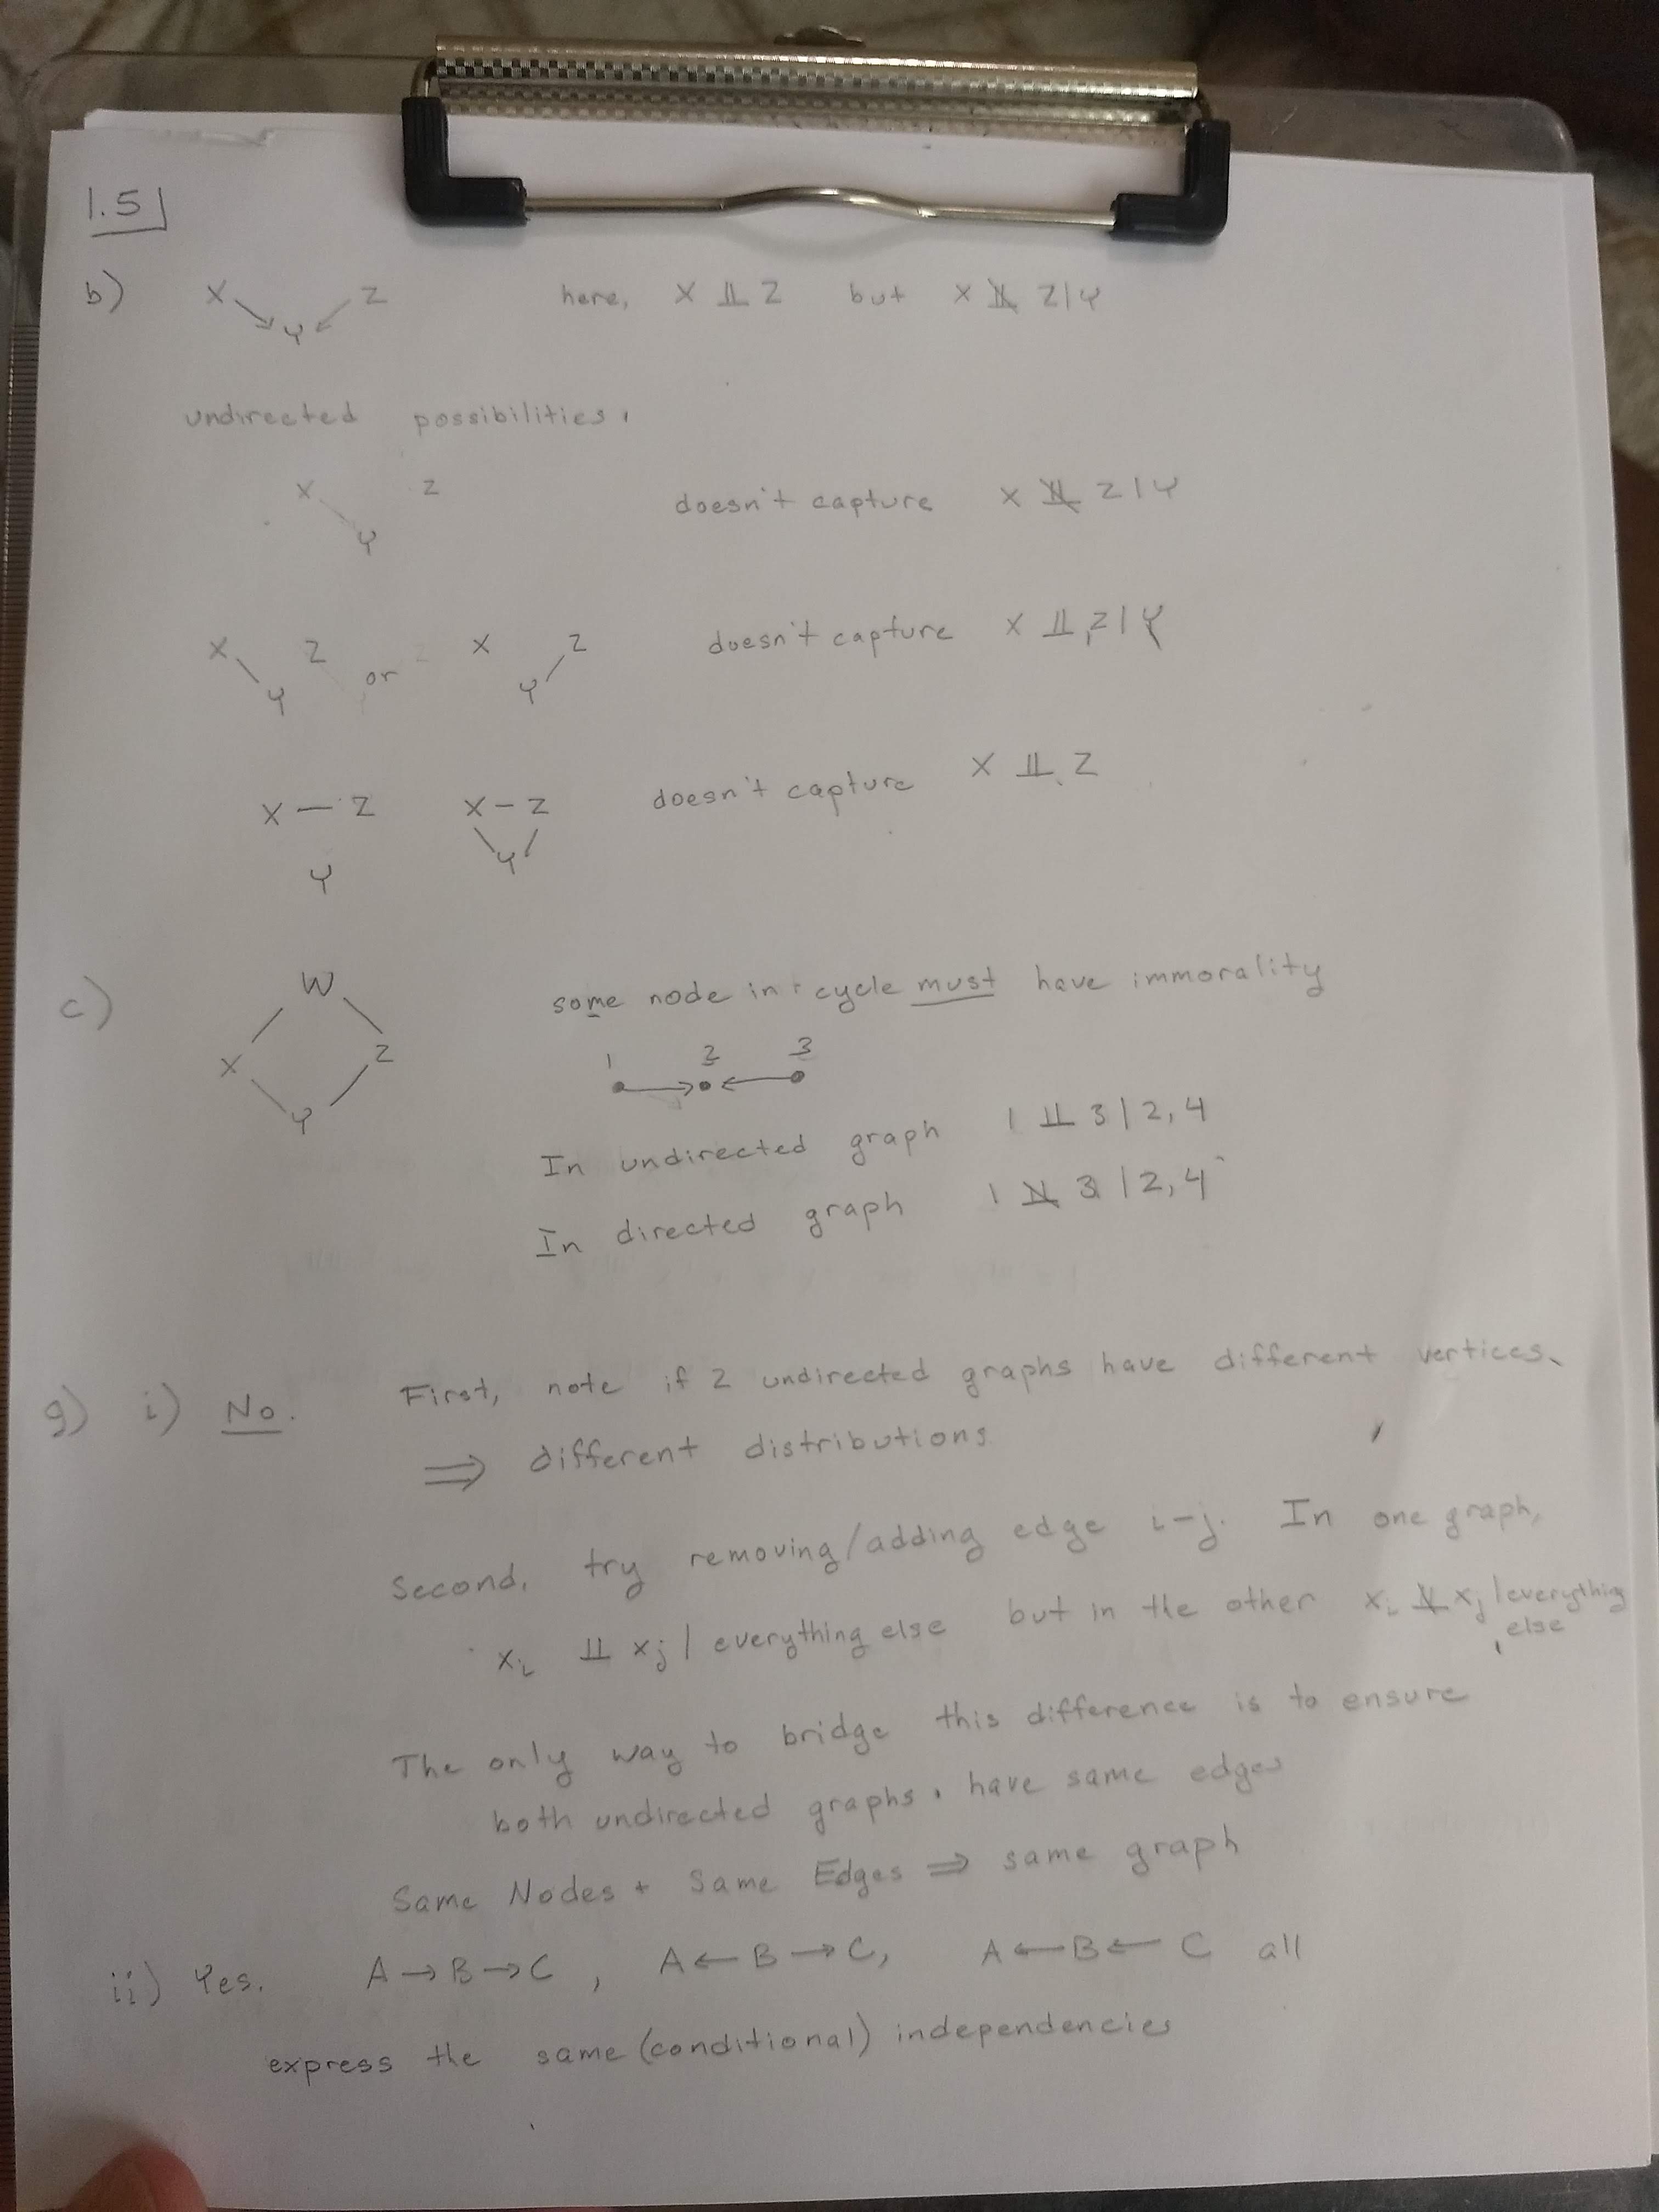 1.5
b) X Z here, X ⫫ Z but X ⫫̸ Z|Y
Y
undirected possibilities.
X Z doesn't capture X ⫫̸ Z|Y
Y
X Z or X Z doesn't capture X ⫫̸ Z|Y
Y Y
X — Z X – Z doesn't capture X ⫫ Z
Y Y
c) W some node in cycle must have immorality
X Z 1 2 3
Y In undirected graph 1 ⫫ 3|2,4
In directed graph 1 ⫫̸ 3|2,4
g) i) No. First, note if 2 undirected graphs have different vertices
⟹ different distributions
Second, try removing/adding edge i–j. In one graph,
xᵢ ⫫ xⱼ | everything else but in the other xᵢ ⫫̸ xⱼ | everything
else
The only way to bridge this difference is to ensure
both undirected graphs have same edges
Same Nodes + Same Edges ⟹ same graph
ii) Yes. A → B → C, A ← B → C, A ← B ← C all
express the same (conditional) independencies